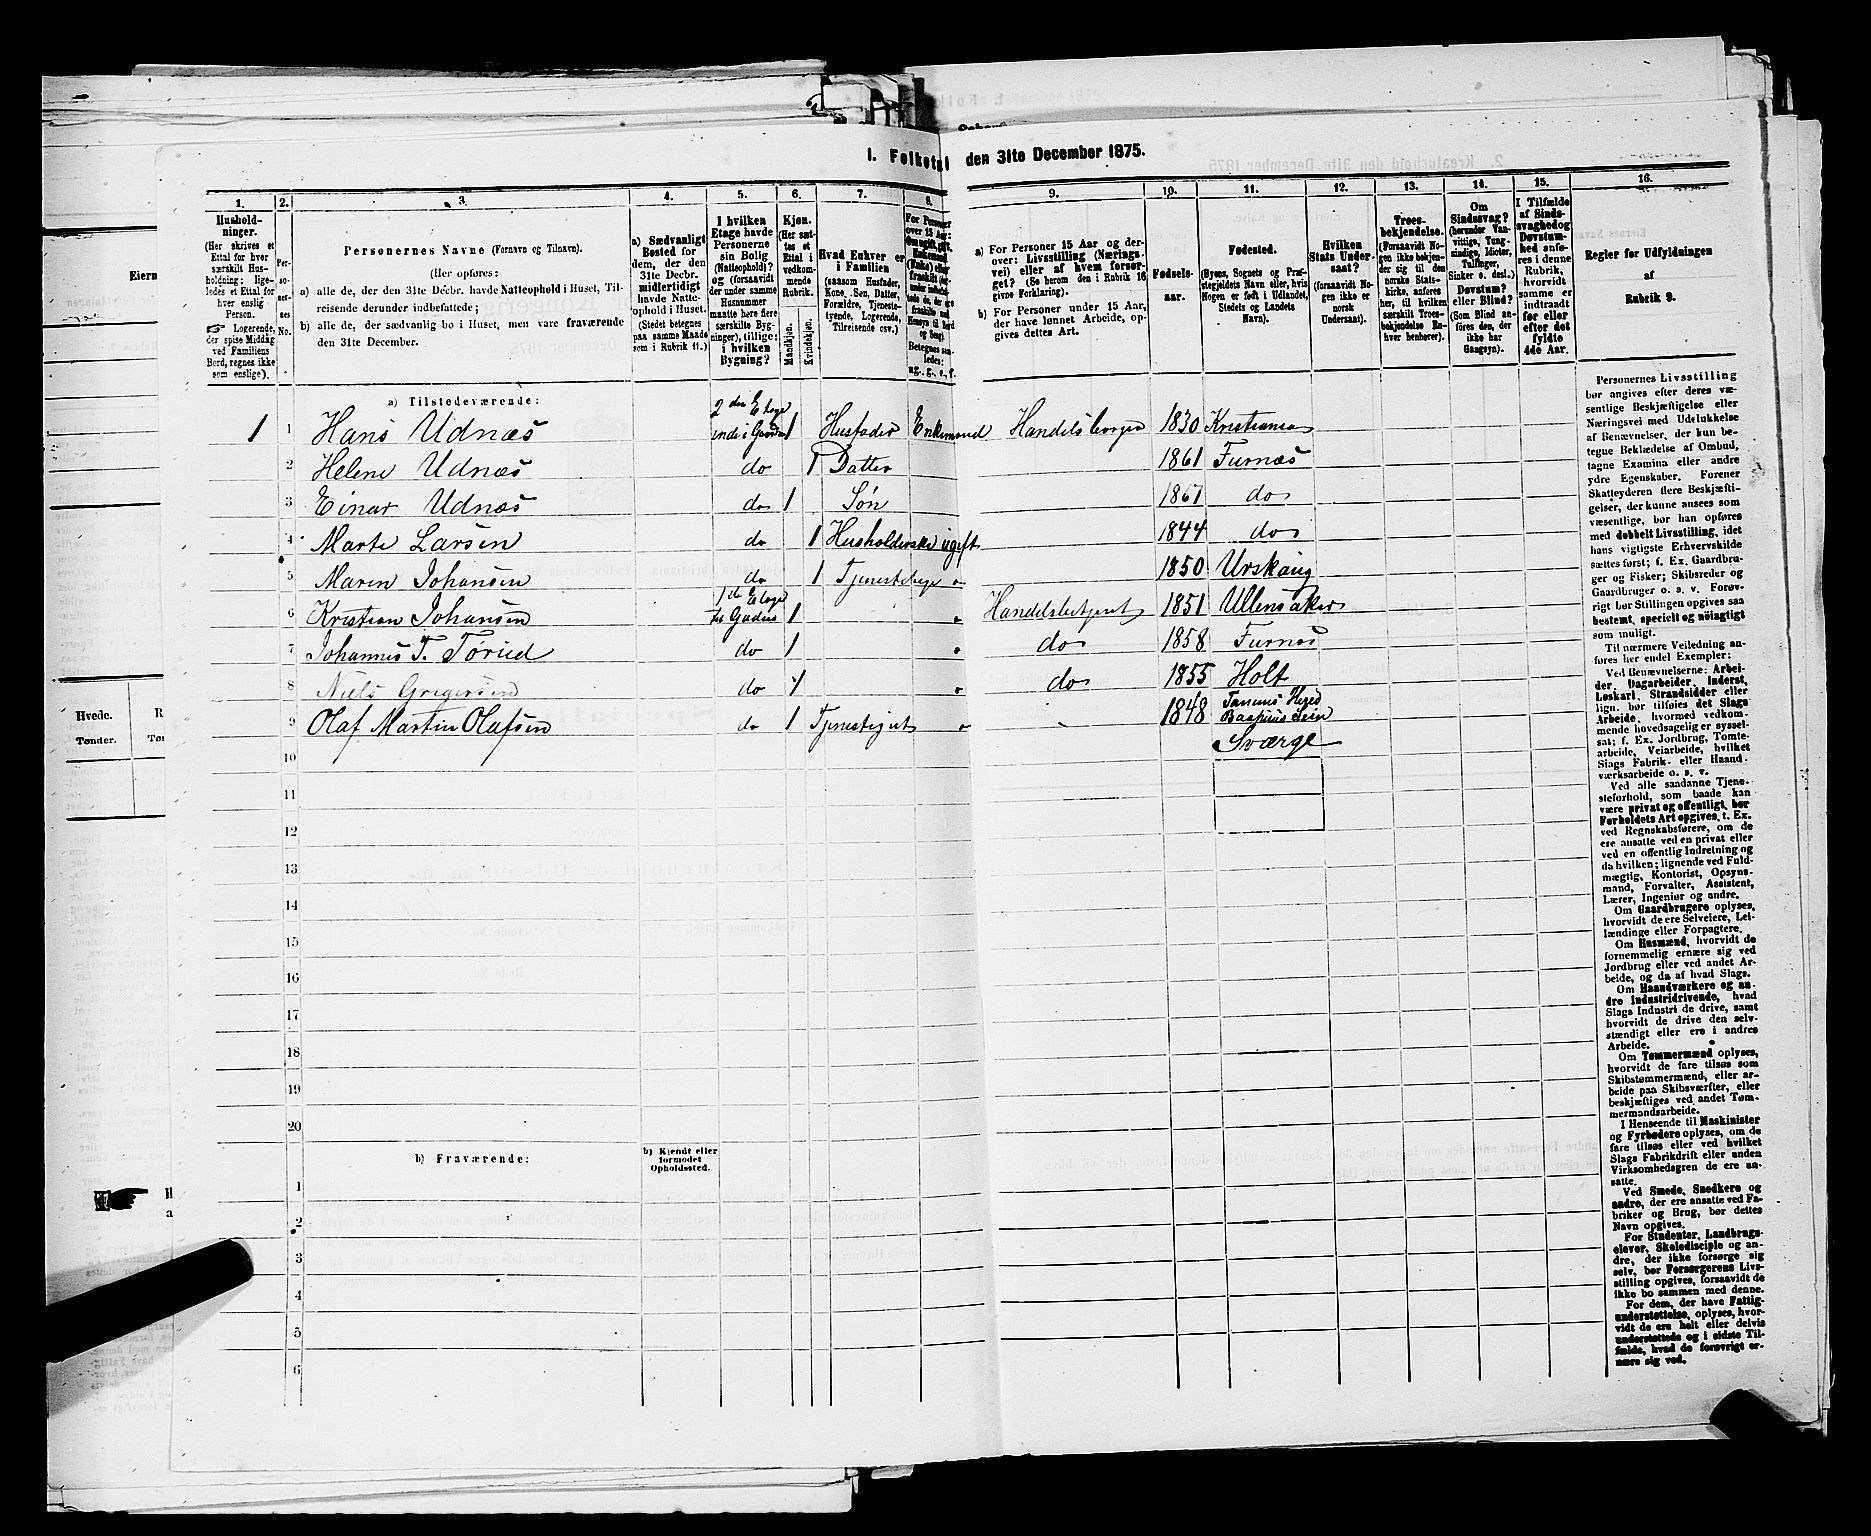 I. Folketæl den 31te December 1875.
1. 2. 3. 4. 5. 6. 7. 8. 9. 10. 11. 12. 13. 14. 15. 16.
Hushold-
ninger.
(Her skrives et
Ettal for hver
særskilt Hus-
holdning; lige-
ledes et Ettal for
hver enslig
Person.
☞ Logerende,
der spise Middag
ved Familiens
Bord, regnes ikke
som enslige).
Per-
so-
ner-
nes
No.
Personernes Navne (Fornavn og Tilnavn).
(Her opføres:
a) alle de, der den 31te Decbr. havde Natteophold i Huset, Til-
reisende derunder indbefattede;
b) alle de, der sædvanlig bo i Huset, men vare fraværende
den 31te December.
a) Sædvanligt
Bosted for
dem, der den
31te Decbr.
midlertidigt
havde Natte-
ophold i Huset.
(Stedet betegnes
paa samme Maade
som i Rubrik 11.)
I hvilken
Etage havde
Personerne
sin Bolig
(Natteophold)?
og (forsaavidt
der under samme
Husnummer
maatte høre flere
særskilte Byg-
ninger), tillige:
i hvilken
Bygning?
Kjøn.
(Her sæt-
tes et
Ettal i
vedkom-
mende
Rubrik.
Mandkjøn.
Kvindekjøn.
Hvad Enhver er
i Familien
(saasom Husfader,
Kone, Søn, Datter,
Forældre, Tjeneste-
tyende, Logerende,
Tilreisende osv.)
For Personer
over 15 Aar:
Om ugift, gift,
Betegnes saa-
ledes:
ug., g., e., f.
a) For Personer 15 Aar og der-
over: Livsstilling (Nærings-
vei) eller af hvem forsør-
get? (Se herom den i Rubrik 16
givne Forklaring).
b) For Personer under 15 Aar,
der have lønnet Arbeide, op-
gives dettes Art.
Fødsels-
aar.
Fødested.
(Byens, Sognets og Præ-
stegjeldets Navn eller, hvis
Nogen er født i Udlandet,
Stedets og Landets
Navn).
Hvilken
Stats Under-
saat?
(forsaavidt No-
gen ikke er
norsk
Undersaat).
Troes-
bekjendelse.
(Forsaavidt No-
gen ikke bekjen-
der sig til den
norske Stats-
kirke, anføres
her, til hvilken
særskilt Troes-
bekjendelse En-
hver henhører).
Om
Sindssvag?
(herunder Van-
vittige, Tung-
sindige, Idioter,
Tullinger,
Sinker o. desl.)
Døvstum?
eller Blind?
(Som Blind an-
føres den, der
ikke har
Gangsyn).
I Tilfælde
af Sinds-
svaghed og
Døvstum-
hed anfø-
res i denne
Rubrik,
hvorvidt
samme er
indtraadt
før eller
efter det
fyldte
4de Aar.
Regler for Udfyldningen
af
Rubrik 9.
a) Tilstedeværende:
2den Etage
1 1 Hans Udnæs inde i Gaarden 1 Husfader Enkemand Handelsborger 1830 Kristiansa
2 Helene Udnæs do 1 Datter 1861 Furnæs
3 Einar Udnæs do 1 Søn 1867 do
4 Marte Larsen do 1 Husholderske ugift 1844 do
5 Maren Johansen do 1 Tjenestepige " 1850 Urskoug
1ste Etage
6 Kristian Johansen til Gaden 1 " Handelsbetjent 1851 Ullensaker
7 Johannes T. Torud do 1 " do 1858 Furnæs
8 Niels Gregersen do 1 " do 1855 Holt
9 Olaf Martin Olafsen do 1 Tjenestegut " 1848
Sværge
10
11
12
13
14
15
16
17
18
19
20
b) Fraværende:
b) Kjendt eller
formodet
Opholdssted.
1
2
3
4
5
6
Personernes Livsstilling
bør angives efter deres væ-
sentlige Beskjæftigelse eller
Næringsvei med Udelukkelse
af Benævnelser, der kun be-
tegne Beklædelse af Ombud,
tagne Examina eller andre
ydre Egenskaber. Forener
Skatteyderen flere Beskjæfti-
gelser, der kunne ansees som
væsentlige, bør han opføres
med dobbelt Livsstilling, idet
hans vigtigste Erhvervskilde
sættes først; f. Ex. Gaardbru-
ger og Fisker; Skibsreder og
Gaardbruger o. s. v. Forøv-
rigt bør Stillingen opgives saa
bestemt, specielt og nøiagtigt
som muligt.
Til nærmere Veiledning an-
føres her endel Exempler:
Ved Benævnelserne: Arbei-
der, Dagarbeider, Inderst,
Løskarl, Strandsidder eller
lign. bør tilføies det Slags
Arbeide, hvormed vedkom-
mende hovedsagelig er syssel-
sat; f. Ex. Jordbrug, Tomte-
arbeide, Veiarbeide, hvilket
Slags Fabrik- eller Haand-
værksarbeide o. s. v.
Ved alle saadanne Tjene-
steforhold, som baade kan
være privat og offentligt, bør
Forholdets Art opgives, t. Ex.
ved Regnskabsførere, om de
ere ansatte ved en privat eller
ved en offentlig Indretning og
da hvilken; lignende ved Fuld-
mægtig, Kontorist, Opsyns-
mand, Forvalter, Assistent,
Lærer, Ingeniør og andre.
Om Gaardbrugere oplyses,
hvorvidt de ere Selveiere, Lei-
lændinge eller Forpagtere.
Om Husmænd, hvorvidt de
fornemmelig ernære sig ved
Jordbrug eller ved andet Ar-
beide, og da af hvad Slags.
Om Haandværkere og an-
dre Industridrivende, hvad
Slags Industri de drive, samt
hvorvidt de drive den selv-
stændigt eller ere i andres
Arbeide.
Om Tømmermænd oplyses,
hvorvidt de fare tilsøs som
Skibstømmermænd, eller ar-
beide paa Skibsværfter, eller
beskjæftiges ved andet Tøm-
mermandsarbeide.
I Henseende til Maskinister
og Fyrbødere oplyses, om de
fare tilsøs eller ved hvilket
Slags Fabrikdrift eller anden
Virksomhedsgren de ere an-
satte.
Ved Smede, Snedkere og
andre, der ere ansatte ved Fa-
briker og Brug, bør dettes
Navn opgives.
For Studenter, Landbrugs-
elever, Skoledisciple og an-
dre, der ikke forsørge sig
selv, bør Forsørgerens Livs-
stilling opgives, forsaavidt de
ikke bo sammen med denne.
For dem, der have Fattig-
understøttelse, oplyses, hvor-
vidt de ere helt eller delvis
understøttede og i sidste Til-
fælde, hvad de forøvrigt er-
nære sig ved.
Eiern
Hvede.
Tønder.